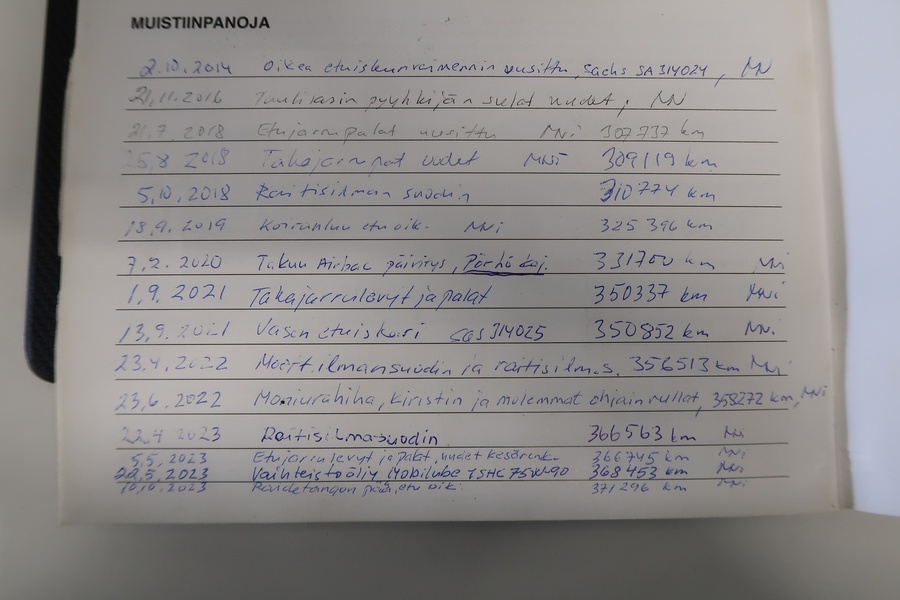 MUISTIINPANOJA
2.10.2014 Oikea etuiskunvaimennin uusittu, Sachs SA 314024, MN
21.11.2016 Tuulilasin pyyhkijän sulat uudet, MN
21.7.2018 Etujarrupalat uusittu MNi 307737 km
25.8 2018 Takajarrupat uudet MNi 309119 km
5.10.2018 Raitisilman suodin 310774 km
18.9.2019 Koiranluu etu oik. MNi 325 396 km
7.2.2020 Takuu Airbac päivitys, Pörhö 331700 km MNi
1.9.2021 Takajarrulevyt ja palat 350337 km MNi
13.9.2021 Vasen etuiskari 314025 350852 km MNi
23.4.2022 Moott.ilmansuodin ja raitisilm.s. 356513 km MNi
23.6.2022 Moniurahihna, kiristin ja molemmat ohjainrullat, 358272 km, MNi
22.4 2023 Raitisilmasuodin 366563 km MNi
5.5.2023 Etujarrulevyt ja palat, uudet kesärenk. 366745 km MNi
.5.2023 Vaihteistoöljy Mobilube 1 SHC 75W-90 368453 km MNi
10.10.2023 Raidetangon pää, etu oik. 371296 km MNi